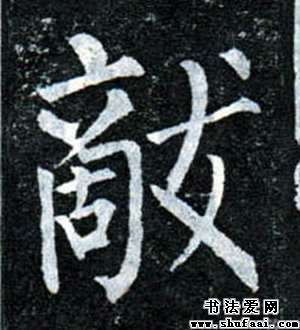 敵
书法爱网
www.shufaai.com